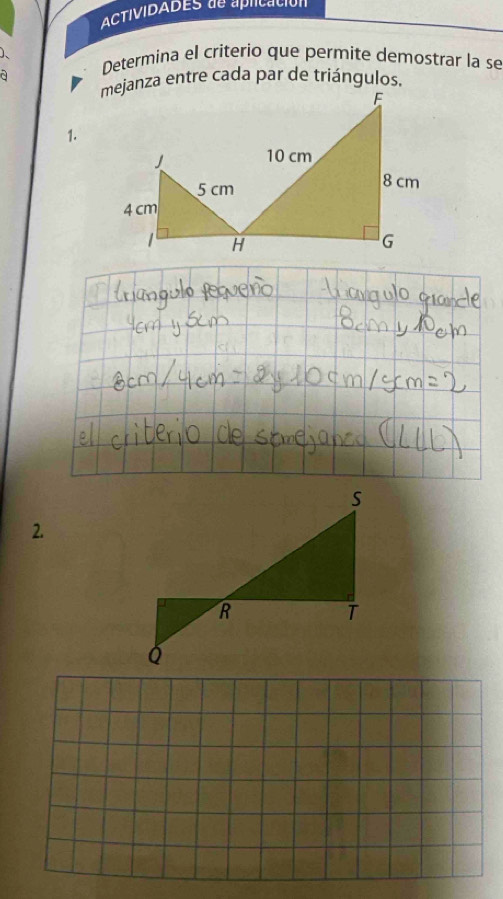 ACTIVIDADES de aplicación
Determina el criterio que permite demostrar la se
mejanza entre cada par de triángulos.
1.
F
J
10 cm
5 cm
8 cm
4 cm
I
H
G
triangulo pequeño triangulo grande
4cm y 5cm 8cm y 10cm
8cm/4cm = 2 y 10cm/5cm=2
el criterio de semejanza (LLL)
2.
S
R
T
Q